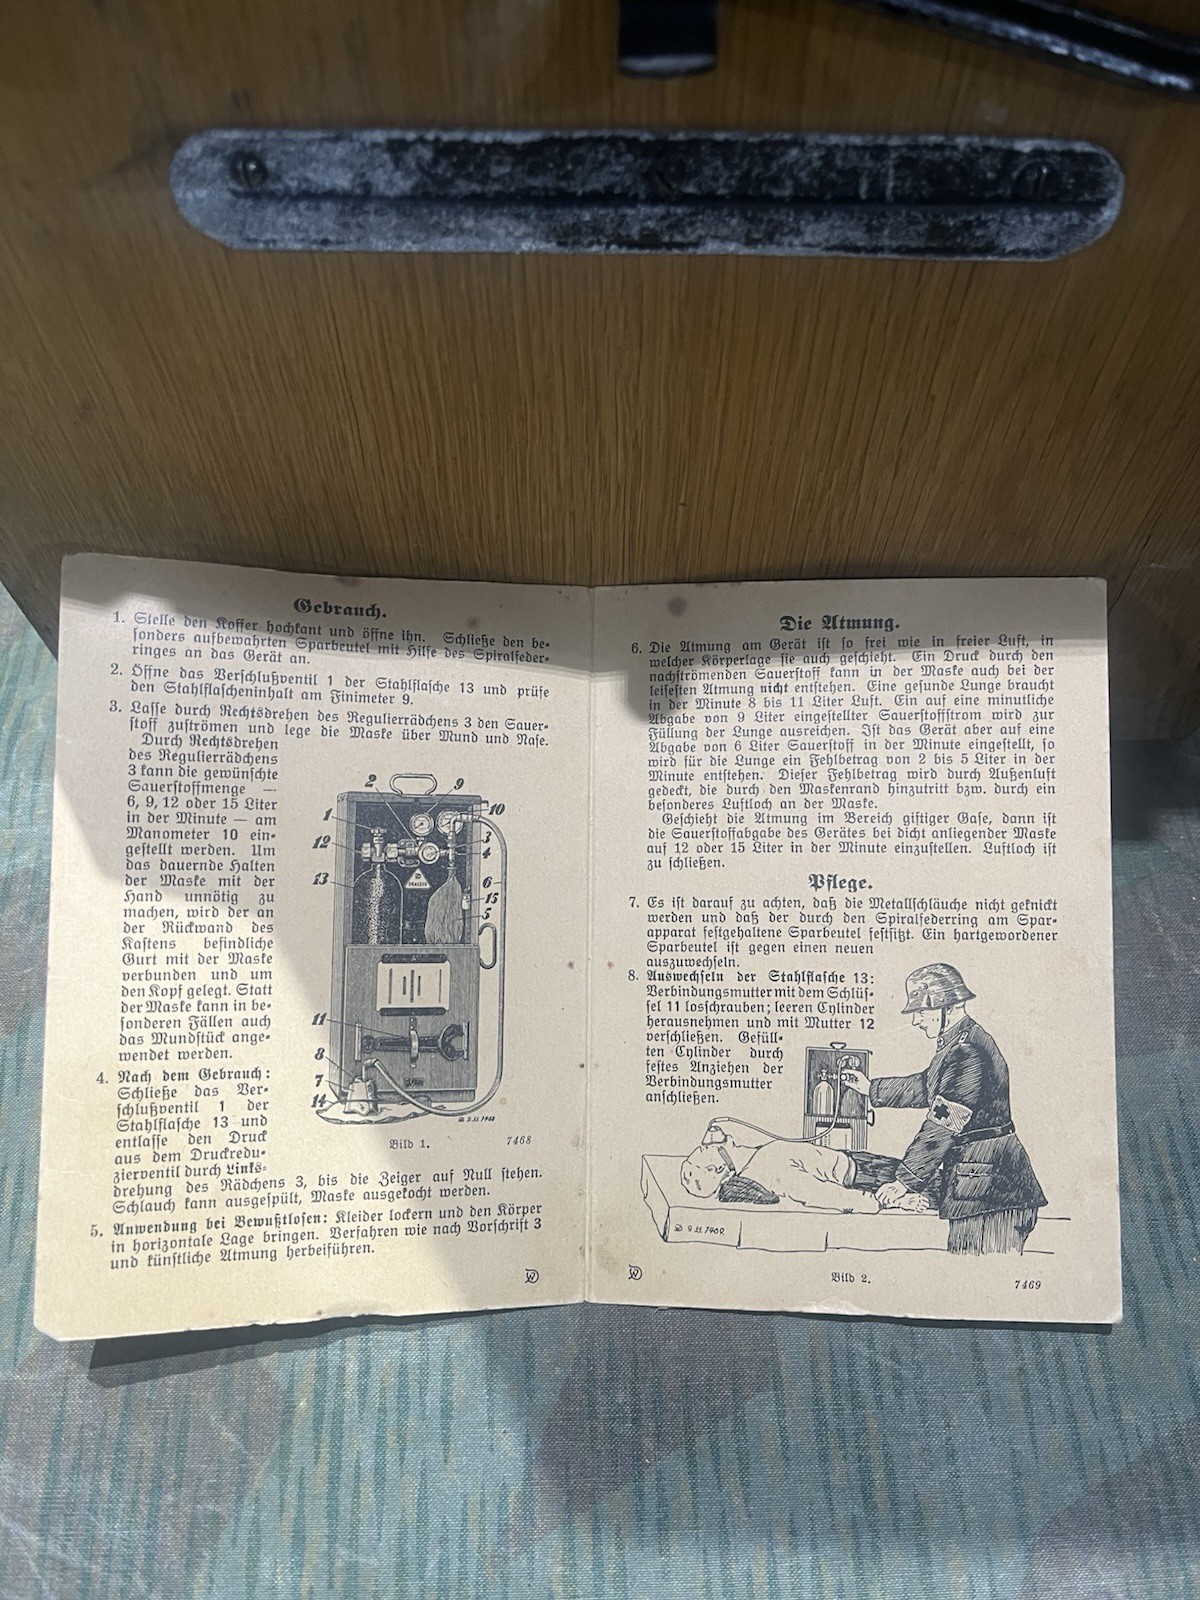 Gebrauch.
1. Stelle den Koffer hochkant und öffne ihn. Schließe den be-
sonders aufbewahrten Sparbeutel mit Hilfe des Spiralfeder-
ringes an das Gerät an.
2. Öffne das Verschlußventil 1 der Stahlflasche 13 und prüfe
den Stahlflascheninhalt am Finimeter 9.
3. Lasse durch Rechtsdrehen des Regulierrädchens 3 den Sauer-
stoff zuströmen und lege die Maske über Mund und Nase.
Durch Rechtsdrehen
des Regulierrädchens
3 kann die gewünschte
Sauerstoffmenge —
6, 9, 12 oder 15 Liter
in der Minute — am
Manometer 10 ein-
gestellt werden. Um
das dauernde Halten
der Maske mit der
Hand unnötig zu
machen, wird der an
der Rückwand des
Kastens befindliche
Gurt mit der Maske
verbunden und um
den Kopf gelegt. Statt
der Maske kann in be-
sonderen Fällen auch
das Mundstück ange-
wendet werden.
4. Nach dem Gebrauch:
Schließe das Ver-
schlußventil 1 der
Stahlflasche 13 und
entlasse den Druck
aus dem Druckredu-
zierventil durch Links-
drehung des Rädchens 3, bis die Zeiger auf Null stehen.
Schlauch kann ausgespült, Maske ausgekocht werden.
5. Anwendung bei Bewußtlosen: Kleider lockern und den Körper
in horizontale Lage bringen. Verfahren wie nach Vorschrift 3
und künstliche Atmung herbeiführen.
2
9
1
10
12
3
4
13
DRAEGER
6
15
5
11
8
7
14
D 9.11.7468
Bild 1.
7468
Die Atmung.
6. Die Atmung am Gerät ist so frei wie in freier Luft, in
welcher Körperlage sie auch geschieht. Ein Druck durch den
nachströmenden Sauerstoff kann in der Maske auch bei der
leisesten Atmung nicht entstehen. Eine gesunde Lunge braucht
in der Minute 8 bis 11 Liter Luft. Ein auf eine minutliche
Abgabe von 9 Liter eingestellter Sauerstoffstrom wird zur
Füllung der Lunge ausreichen. Ist das Gerät aber auf eine
Abgabe von 6 Liter Sauerstoff in der Minute eingestellt, so
wird für die Lunge ein Fehlbetrag von 2 bis 5 Liter in der
Minute entstehen. Dieser Fehlbetrag wird durch Außenluft
gedeckt, die durch den Maskenrand hinzutritt bzw. durch ein
besonderes Luftloch an der Maske.
Geschieht die Atmung im Bereich giftiger Gase, dann ist
die Sauerstoffabgabe des Gerätes bei dicht anliegender Maske
auf 12 oder 15 Liter in der Minute einzustellen. Luftloch ist
zu schließen.
Pflege.
7. Es ist darauf zu achten, daß die Metallschläuche nicht geknickt
werden und daß der durch den Spiralfederring am Spar-
apparat festgehaltene Sparbeutel festsitzt. Ein hartgewordener
Sparbeutel ist gegen einen neuen
auszuwechseln.
8. Auswechseln der Stahlflasche 13:
Verbindungsmutter mit dem Schlüs-
sel 11 losschrauben; leeren Cylinder
herausnehmen und mit Mutter 12
verschließen. Gefüll-
ten Cylinder durch
festes Anziehen der
Verbindungsmutter
anschließen.
D 9.11.7469
Bild 2.
7469